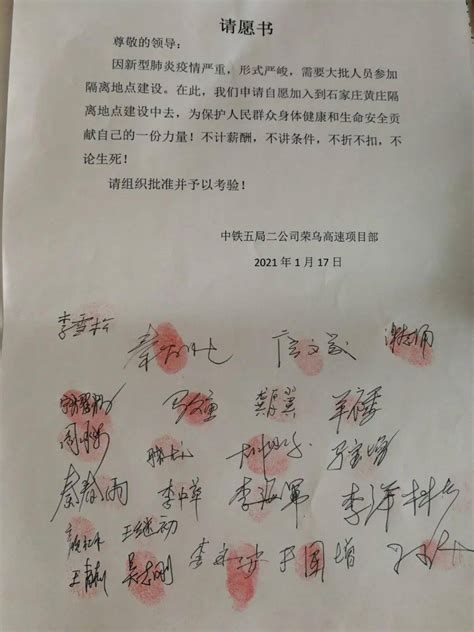 请愿书
尊敬的领导：
因新型肺炎疫情严重，形式严峻，需要大批人员参加
隔离地点建设。在此，我们申请自愿加入到石家庄黄庄隔
离地点建设中去，为保护人民群众身体健康和生命安全贡
献自己的一份力量！不计薪酬，不讲条件，不折不扣，不
论生死！
请组织批准并予以考验！
中铁五局二公司荣乌高速项目部
2021年1月17日
李雪松
龚厚翼
秦春雨 李中華 李海軍 李洋
王继初
吴志刚